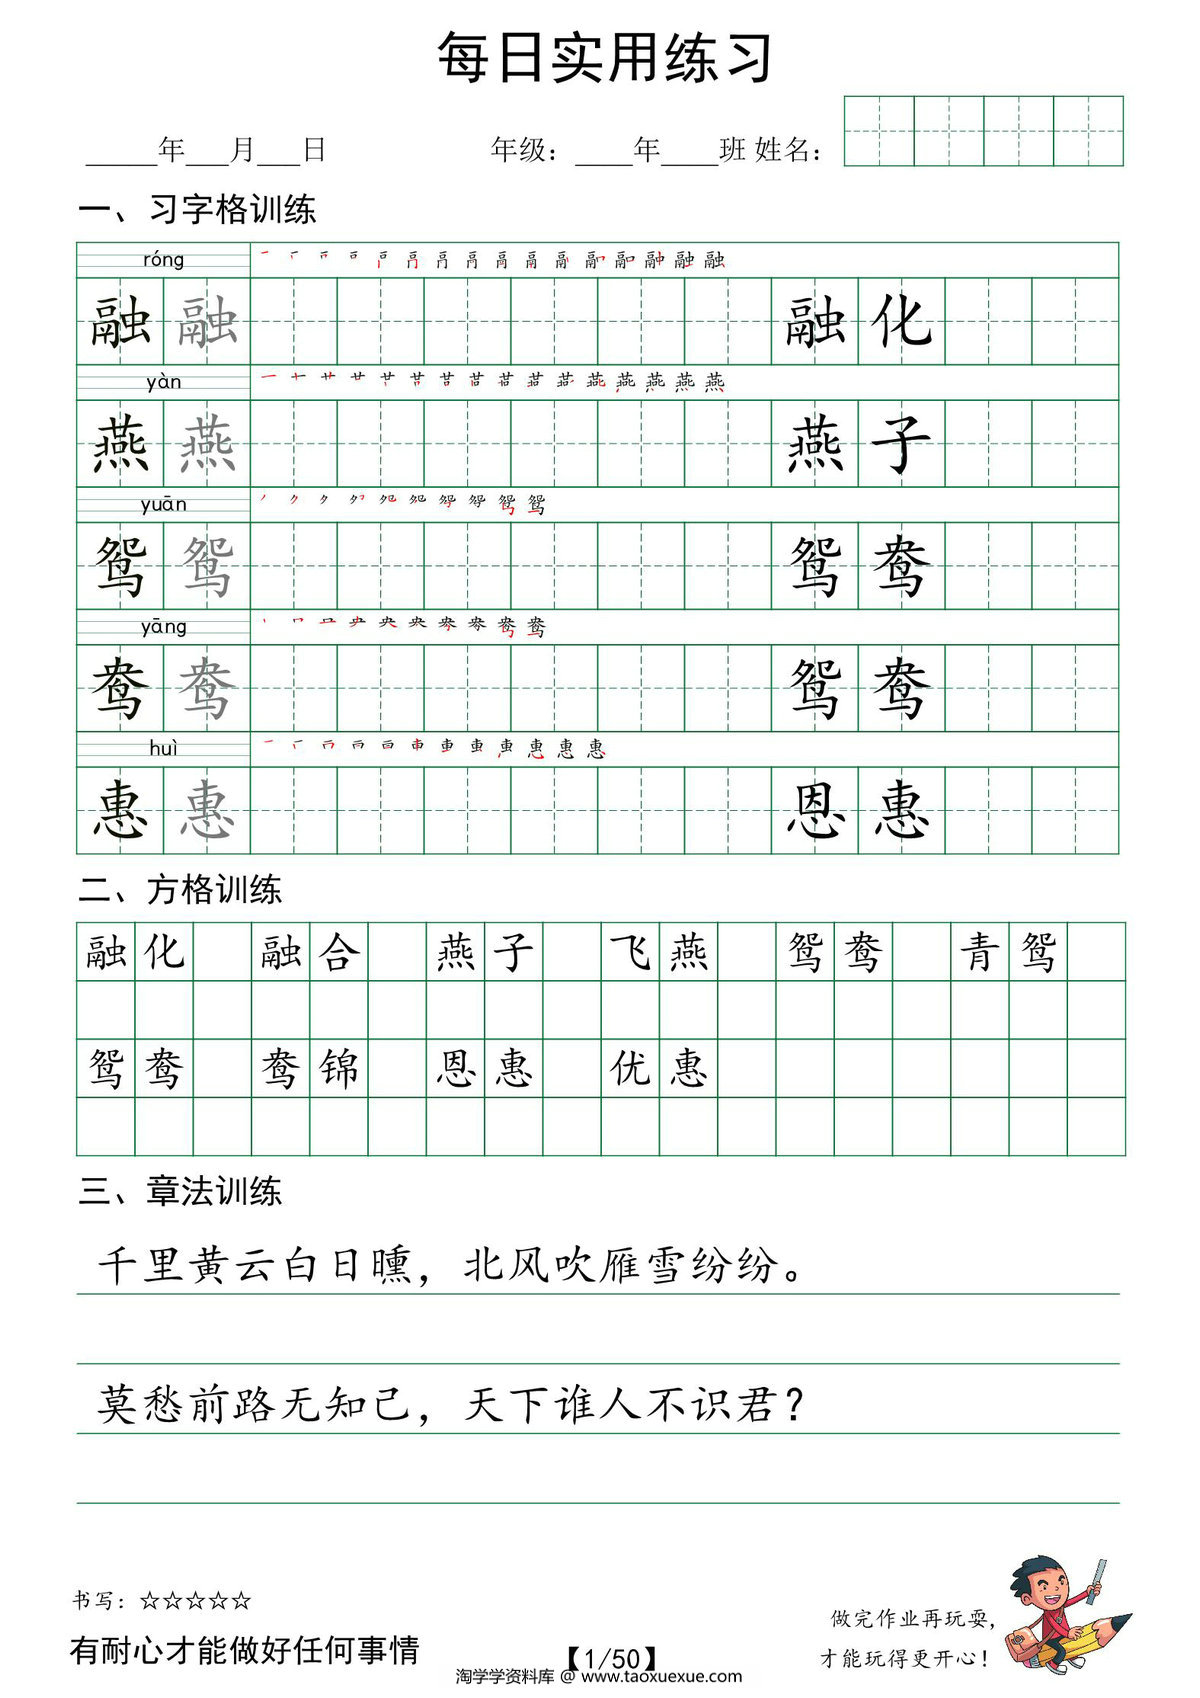 每日实用练习
_____年___月___日 年级：____年____班 姓名：
一、习字格训练
róng
融 融 融 化
yàn
燕 燕 燕 子
yuān
鸳 鸳 鸳 鸯
yāng
鸯 鸯 鸳 鸯
huì
惠 惠 恩 惠
二、方格训练
融化 融合 燕子 飞燕 鸳鸯 青鸳
鸳鸯 鸯锦 恩惠 优惠
三、章法训练
千里黄云白日曛，北风吹雁雪纷纷。
莫愁前路无知己，天下谁人不识君？
书写：☆☆☆☆☆
有耐心才能做好任何事情
【1/50】
做完作业再玩耍，
才能玩得更开心！
淘学学资料库 @ www.taoxuexue.com